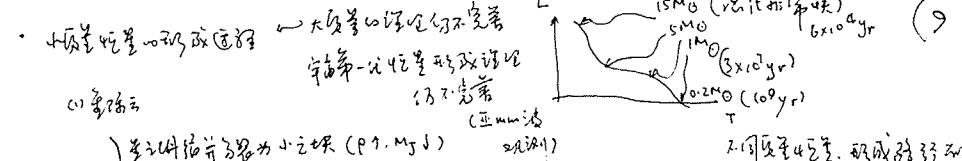 · 小质量恒星的形成过程 ← 大质量的理论仍不完善
宇宙第一代恒星形成理论
仍不完善
(亚mm波
观测)
(1) 星际云
星云坍缩并分裂为小云块 (ρ↑, M_J↓)
L
15M⊙
6×10⁴yr
5M⊙
1M⊙
(3×10⁷yr)
0.2M⊙ (10⁹yr)
T
(9
不同质量恒星, 形成路径不